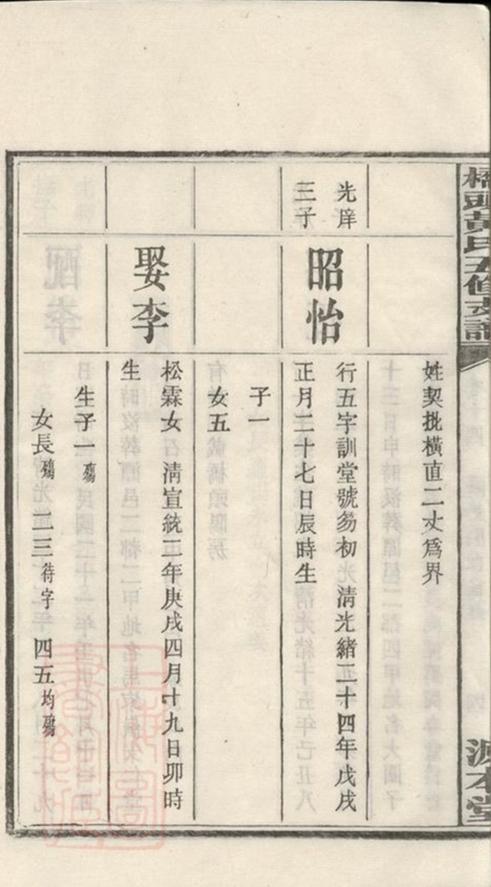 橋頭黃氏五修支譜
源本堂
姓契批橫直二丈爲界
光庠三子
昭怡
行五字訓堂號芴初清光緒二十四年戊戌
正月二十七日辰時生
子一
女五
娶李
松霖女清宣統二年庚戌四月十九日卯時
生
生子一殤
女長殤二三待字四五均殤